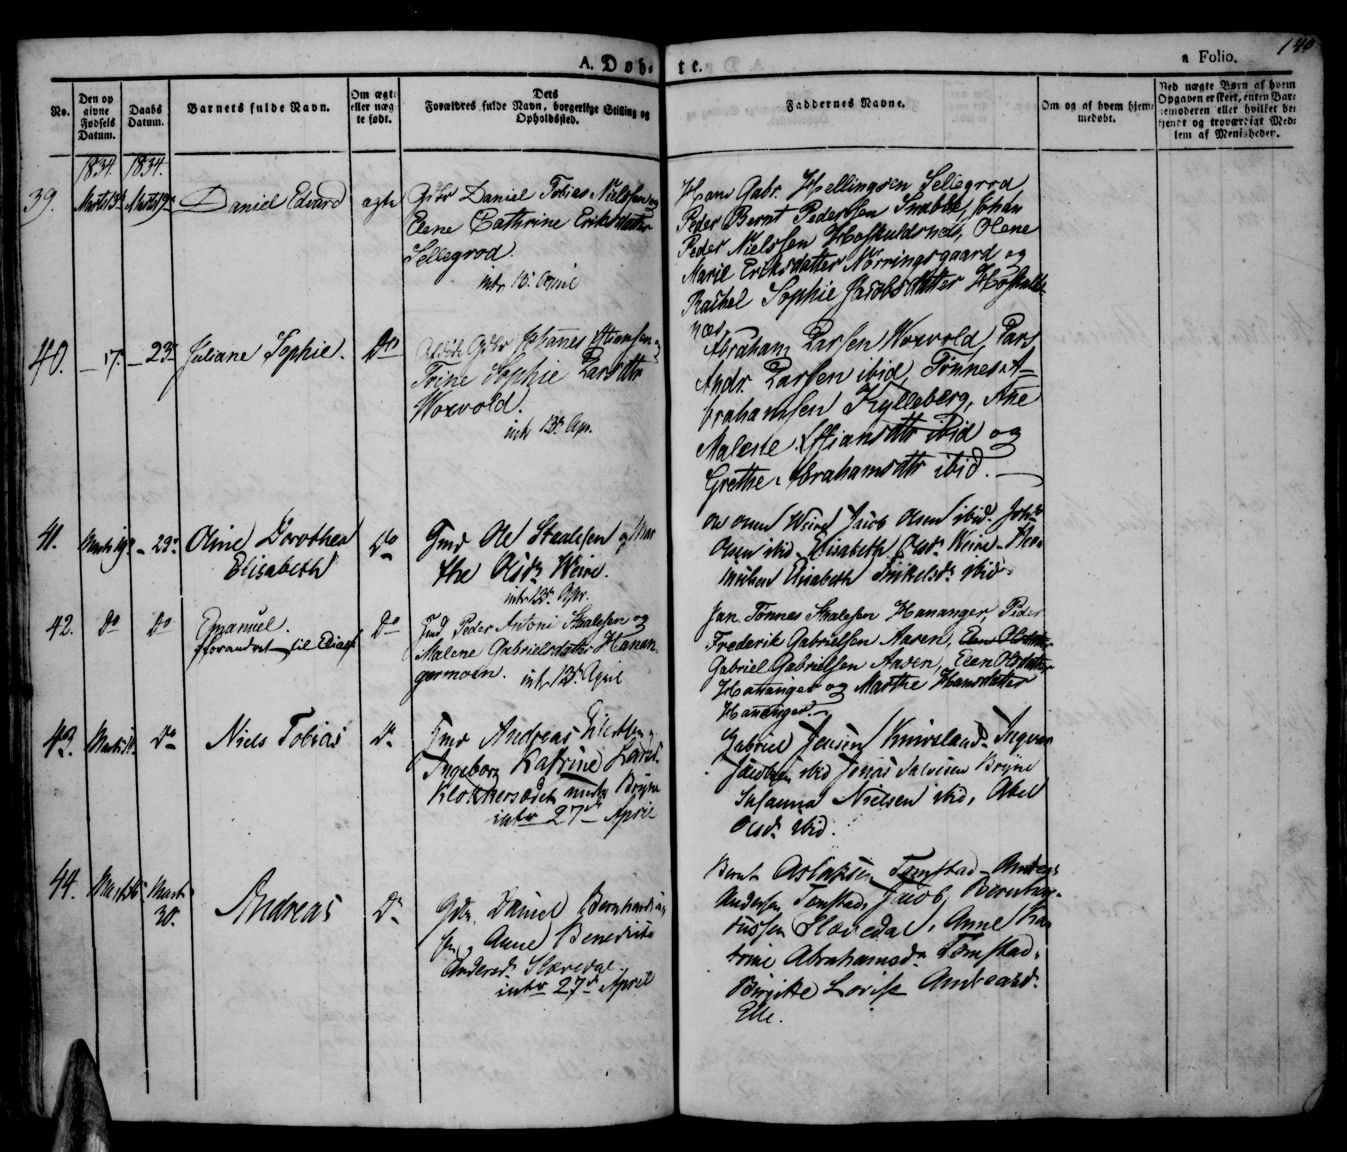 A. Døb-
te.
a Folio.
140
No.
Den op
givne
Fødsels
Datum.
Daabs
Datum.
Barnets fulde Navn.
Om ægte
eller uæg
te født.
Dets
Forældres fulde Navn, borgerlige Stilling og
Opholdssted.
Faddernes Navne.
Om og af hvem hjem-
medøbt.
Ved uægte Børn af hvem
Opgaven er skeet, enten Bar-
nemoderen eller hvilket be-
kjendt og troværdigt Med-
lem af Menigheder.
1834. 1834.
39.
Daniel Edvard
ægte
Daniel Tobias Nielssen og
Elene Cathrine Eriksdatter
Sellegrod.
intr 13. April
Hans Gabr. Hellingsen Sellegrod,
Peder Bernt Pederssen Snebbe, Johan
Peder Nielssen Hoskuldsnes, Olene
Marie Eriksdatter Nørringsgaard og
Rachel Sophie Jacobsdatter Hoskulds-
nes
40.
17. 23
Juliane Sophie.
Do
Trine Sophie Larsdtr
Woxvold.
intr 13. Apr.
Abraham Larsen Woxvold, Lars
Andr. Larsen ibid, Tønnes A-
brahamsen Kylleberg, Ane
Malene ibid og
Grethe Abrahamsdtr ibid.
41.
Marts 19 23
Oline Dorothea
Elisabeth
Do
Gmd Ole Staalesen og Mar
the Olsdr Weire.
intr 13. Apr.
Ole Olsen Weire Jacob Olsen ibid. Johs
Olsen ibid. Elisabeth Olsdr Weire
Elisabeth ibid
42.
Do Do
Emanuel.
forandret til Elias
Do
Gmd Peder Antoni Staalesen og
Malene Gabrielsdatter Hanan-
germoen. intr 13. April
Jan Tønnes Staalesen Hananger, Peder
Frederik Gabrielsen Aasen,
Gabriel Gabrielsen Aasen, Elen Olsdatter
Hananger og Marthe Hansdatter
Hananger.
43.
Do
Niels Tobias
Do
Gmd Andreas
Ingeborg Katrine
Klokkersædet Bryne
intr 27 April
Gabriel Jensen
ibid Jonas Salvesen Bryne
Susanna Nielsen ibid, Abel
Olsd. ibid.
44.
Marts
30.
Andreas
Do
Daniel Bernhardus
sen og Anne Benedikte
Andersd. Slævedal
intr 27 April
Bernt Aslaksen Tomstad Andreas
Andersen Tomstad, Jacob Bernhar-
dussen Slævedal, Anne Ka-
trine Abrahamsd. Tomstad,
Birgitte Lovise
Elle.